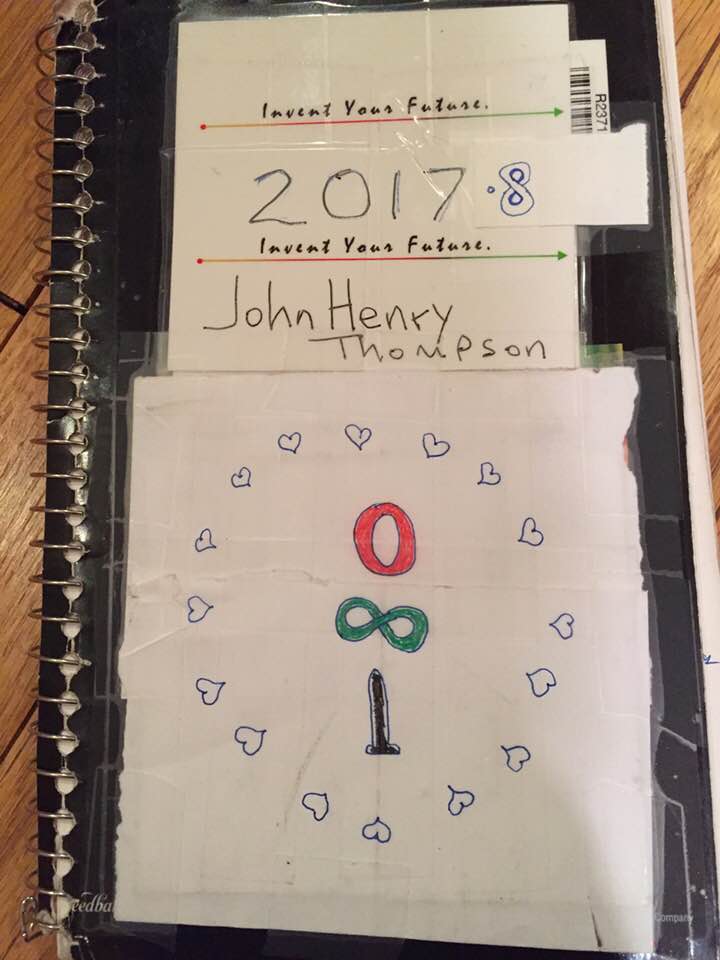 Invent Your Future.
R2371
2017.8
Invent Your Future.
John Henry
Thompson
0
∞
1
eedba
Company